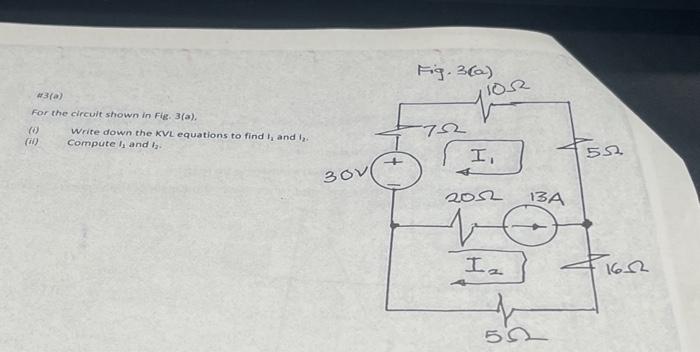 Fig. 3(a)
10Ω
#3(a)
For the circuit shown in Fig. 3(a),
(i) Write down the KVL equations to find I₁ and I₂.
(ii) Compute I₁ and I₂.
7Ω
I₁
5Ω
30V
+
−
20Ω 13A
I₂
16Ω
5Ω